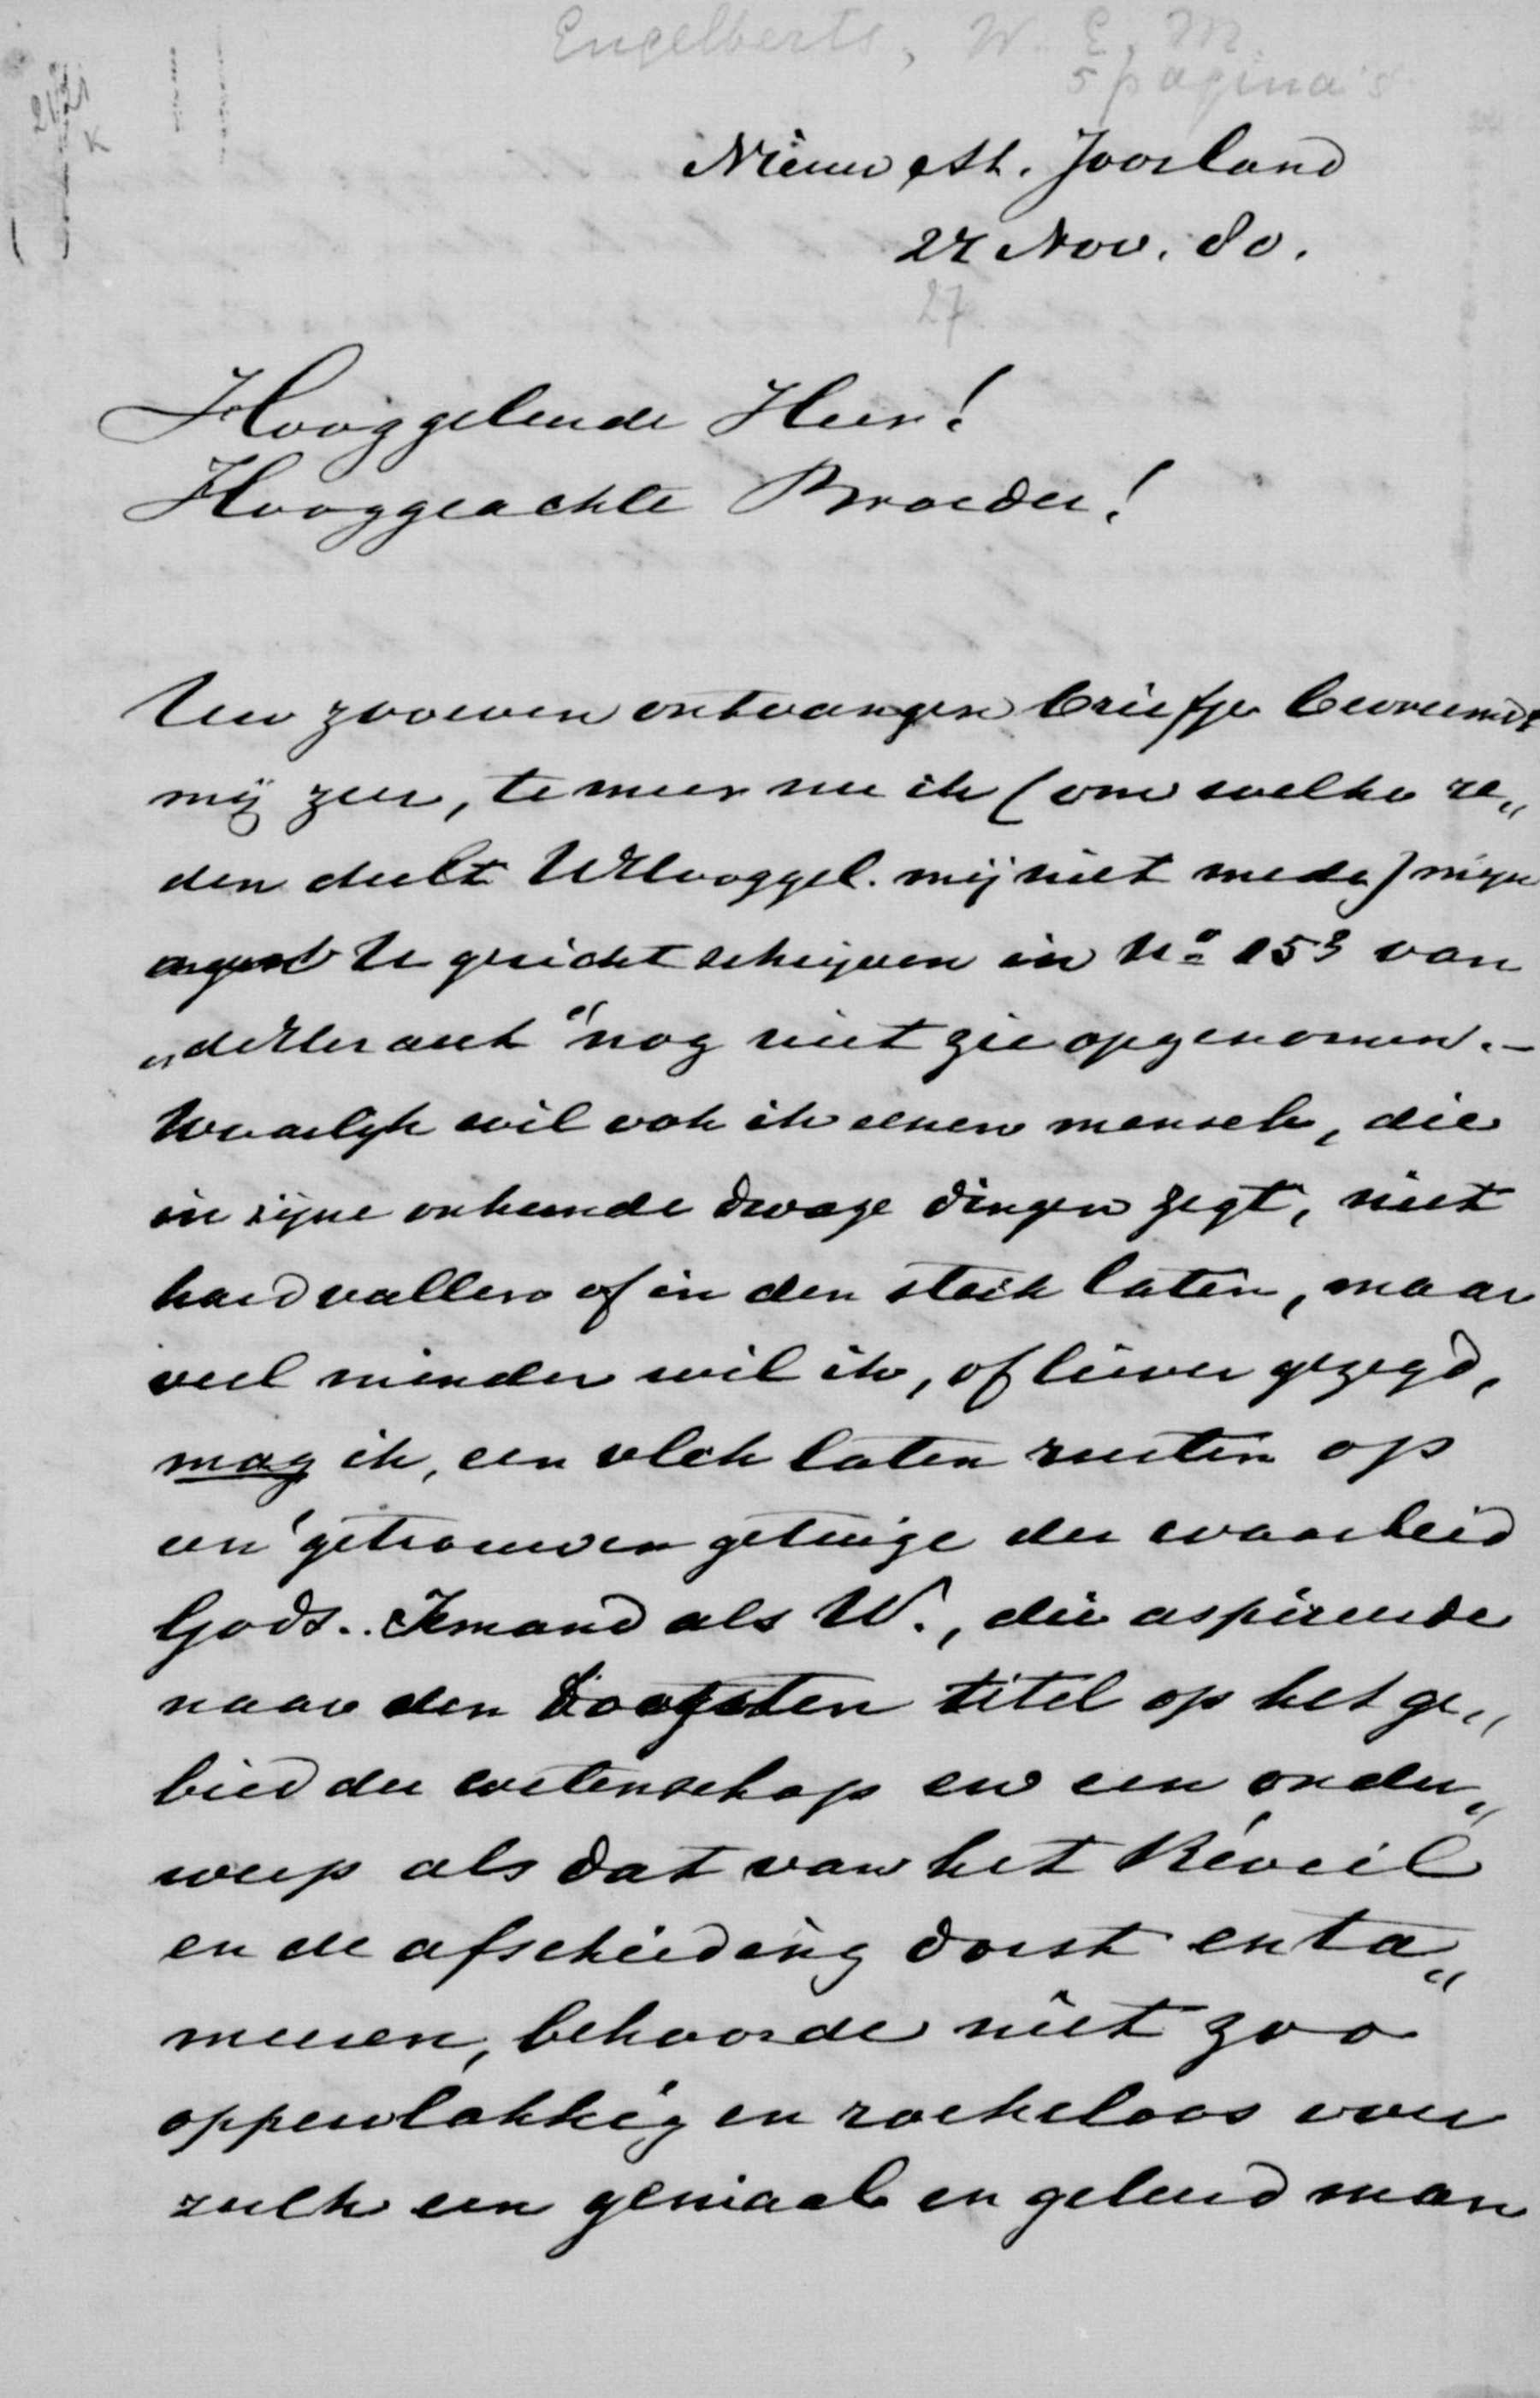 Engelberts, W. E. M.
5 pagina's
2121
K
Nieuw eth. Joorland
27 Nov. 80.
27
Hooggeleerde Heer!
Hooggeachte Broeder!
Uw zooeven ontvangen briefje bevreemdt
mij zeer, te meer nu ik (om welke re„
den deelt UHooggel. mij niet mede) mijn
U gericht schrijven in No 153 van
„de Heraut" nog niet zie opgenomen. -
Waarlijk wil ook ik eenen mensch, die
in zijne onkunde dwaze dingen zegt, niet
hard vallen of in den steek laten, maar
veel minder wil ik, of liever gezegd,
mag ik, een vlek laten rusten op
een getrouwen getuige der waarheid
Gods.. Iemand als W., die aspireerde
naar den hoogsten titel op het ge„
bied der wetenschap en een onder„
werp als dat van het Réveil
en de afscheiding dorst enta„
meeren, behoorde niet zoo
oppervlakkig en roekeloos over
zulk een geniaal en geleerd man